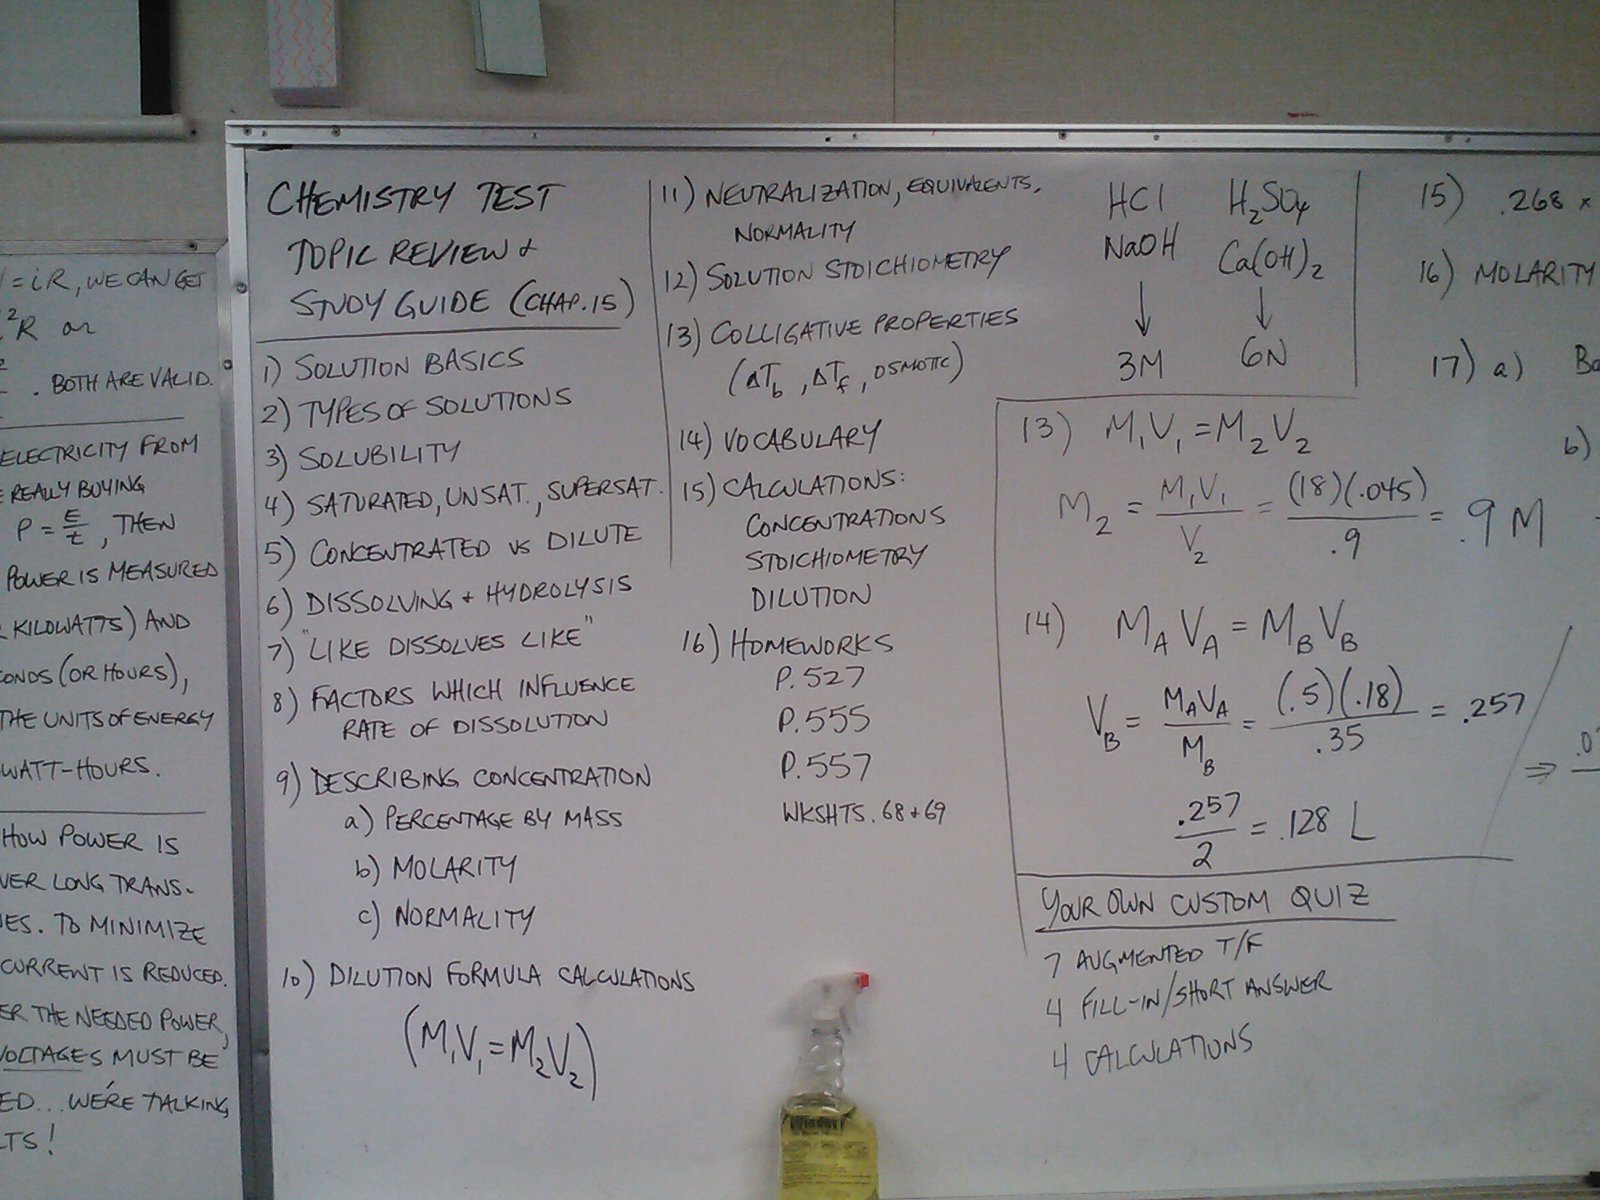 = iR, WE CAN GET
²R or
. BOTH ARE VALID.
ELECTRICITY FROM
REALLY BUYING
P = E/t, THEN
POWER IS MEASURED
KILOWATTS) AND
CONDS (OR HOURS),
THE UNITS OF ENERGY
WATT-HOURS.
HOW POWER IS
VER LONG TRANS-
ES. TO MINIMIZE
CURRENT IS REDUCED.
ER THE NEEDED POWER,
VOLTAGES MUST BE
ED... WE'RE TALKING
LTS!
CHEMISTRY TEST
TOPIC REVIEW +
STUDY GUIDE (CHAP. 15)
1) SOLUTION BASICS
2) TYPES OF SOLUTIONS
3) SOLUBILITY
4) SATURATED, UNSAT., SUPERSAT.
5) CONCENTRATED vs DILUTE
6) DISSOLVING + HYDROLYSIS
7) "LIKE DISSOLVES LIKE"
8) FACTORS WHICH INFLUENCE
RATE OF DISSOLUTION
9) DESCRIBING CONCENTRATION
a) PERCENTAGE BY MASS
b) MOLARITY
c) NORMALITY
10) DILUTION FORMULA CALCULATIONS
(M₁V₁ = M₂V₂)
11) NEUTRALIZATION, EQUIVALENTS,
NORMALITY
12) SOLUTION STOICHIOMETRY
13) COLLIGATIVE PROPERTIES
(ΔT_b, ΔT_f, OSMOTIC)
14) VOCABULARY
15) CALCULATIONS:
CONCENTRATIONS
STOICHIOMETRY
DILUTION
16) HOMEWORKS
P. 527
P. 555
P. 557
WKSHTS. 68 + 69
HCl H₂SO₄
NaOH Ca(OH)₂
↓ ↓
3M 6N
13) M₁V₁ = M₂V₂
M₂ = M₁V₁/V₂ = (18)(.045)/.9 = .9 M
14) M_A V_A = M_B V_B
V_B = M_A V_A/M_B = (.5)(.18)/.35 = .257
.257/2 = .128 L
YOUR OWN CUSTOM QUIZ
7 AUGMENTED T/F
4 FILL-IN/SHORT ANSWER
4 CALCULATIONS
15) .268 ×
16) MOLARITY
17) a) Ba
b)
⇒ .0